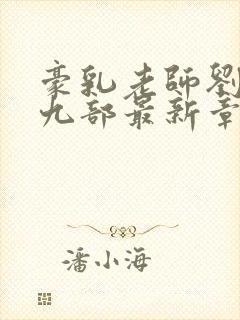 豪乳老師劉
九部最新章
潘小海